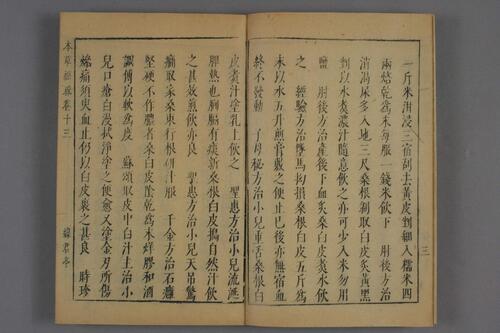 一斤米泔浸三宿刮去黄皮剉細入糯米四
兩焙乾爲末每服一錢米飲下　肘後方治
消渴尿多入地三尺桑根剥取白皮炙黄黑
剉以水煮濃汁隨意飲之亦可少入米勿用
鹽　肘後方治產後下血炙桑白皮煑水飲
之　經驗方治墜馬拗損桑根白皮五斤爲
末以水五升煎膏敷之便止已後亦無宿血
終不發動　子母秘方治小兒重舌桑根白
皮煮汁塗乳上飲之　聖惠方治小兒流涎
脾熱也胸膈有痰新桑根白皮搗自然汁飲
之甚效煎飲亦良　聖惠方治小兒天吊驚
癎取家桑東行根研汁服　千金方治石癰
堅硬不作膿者桑白皮陰乾爲末烊膠和酒
調傅以軟爲度　蘇頌取皮中白汁主治小
兒口瘡白漫拭淨塗之便愈又塗金刃所傷
燥痛須臾血止仍以白皮裹之甚良　時珍
本草彙言卷十三
三